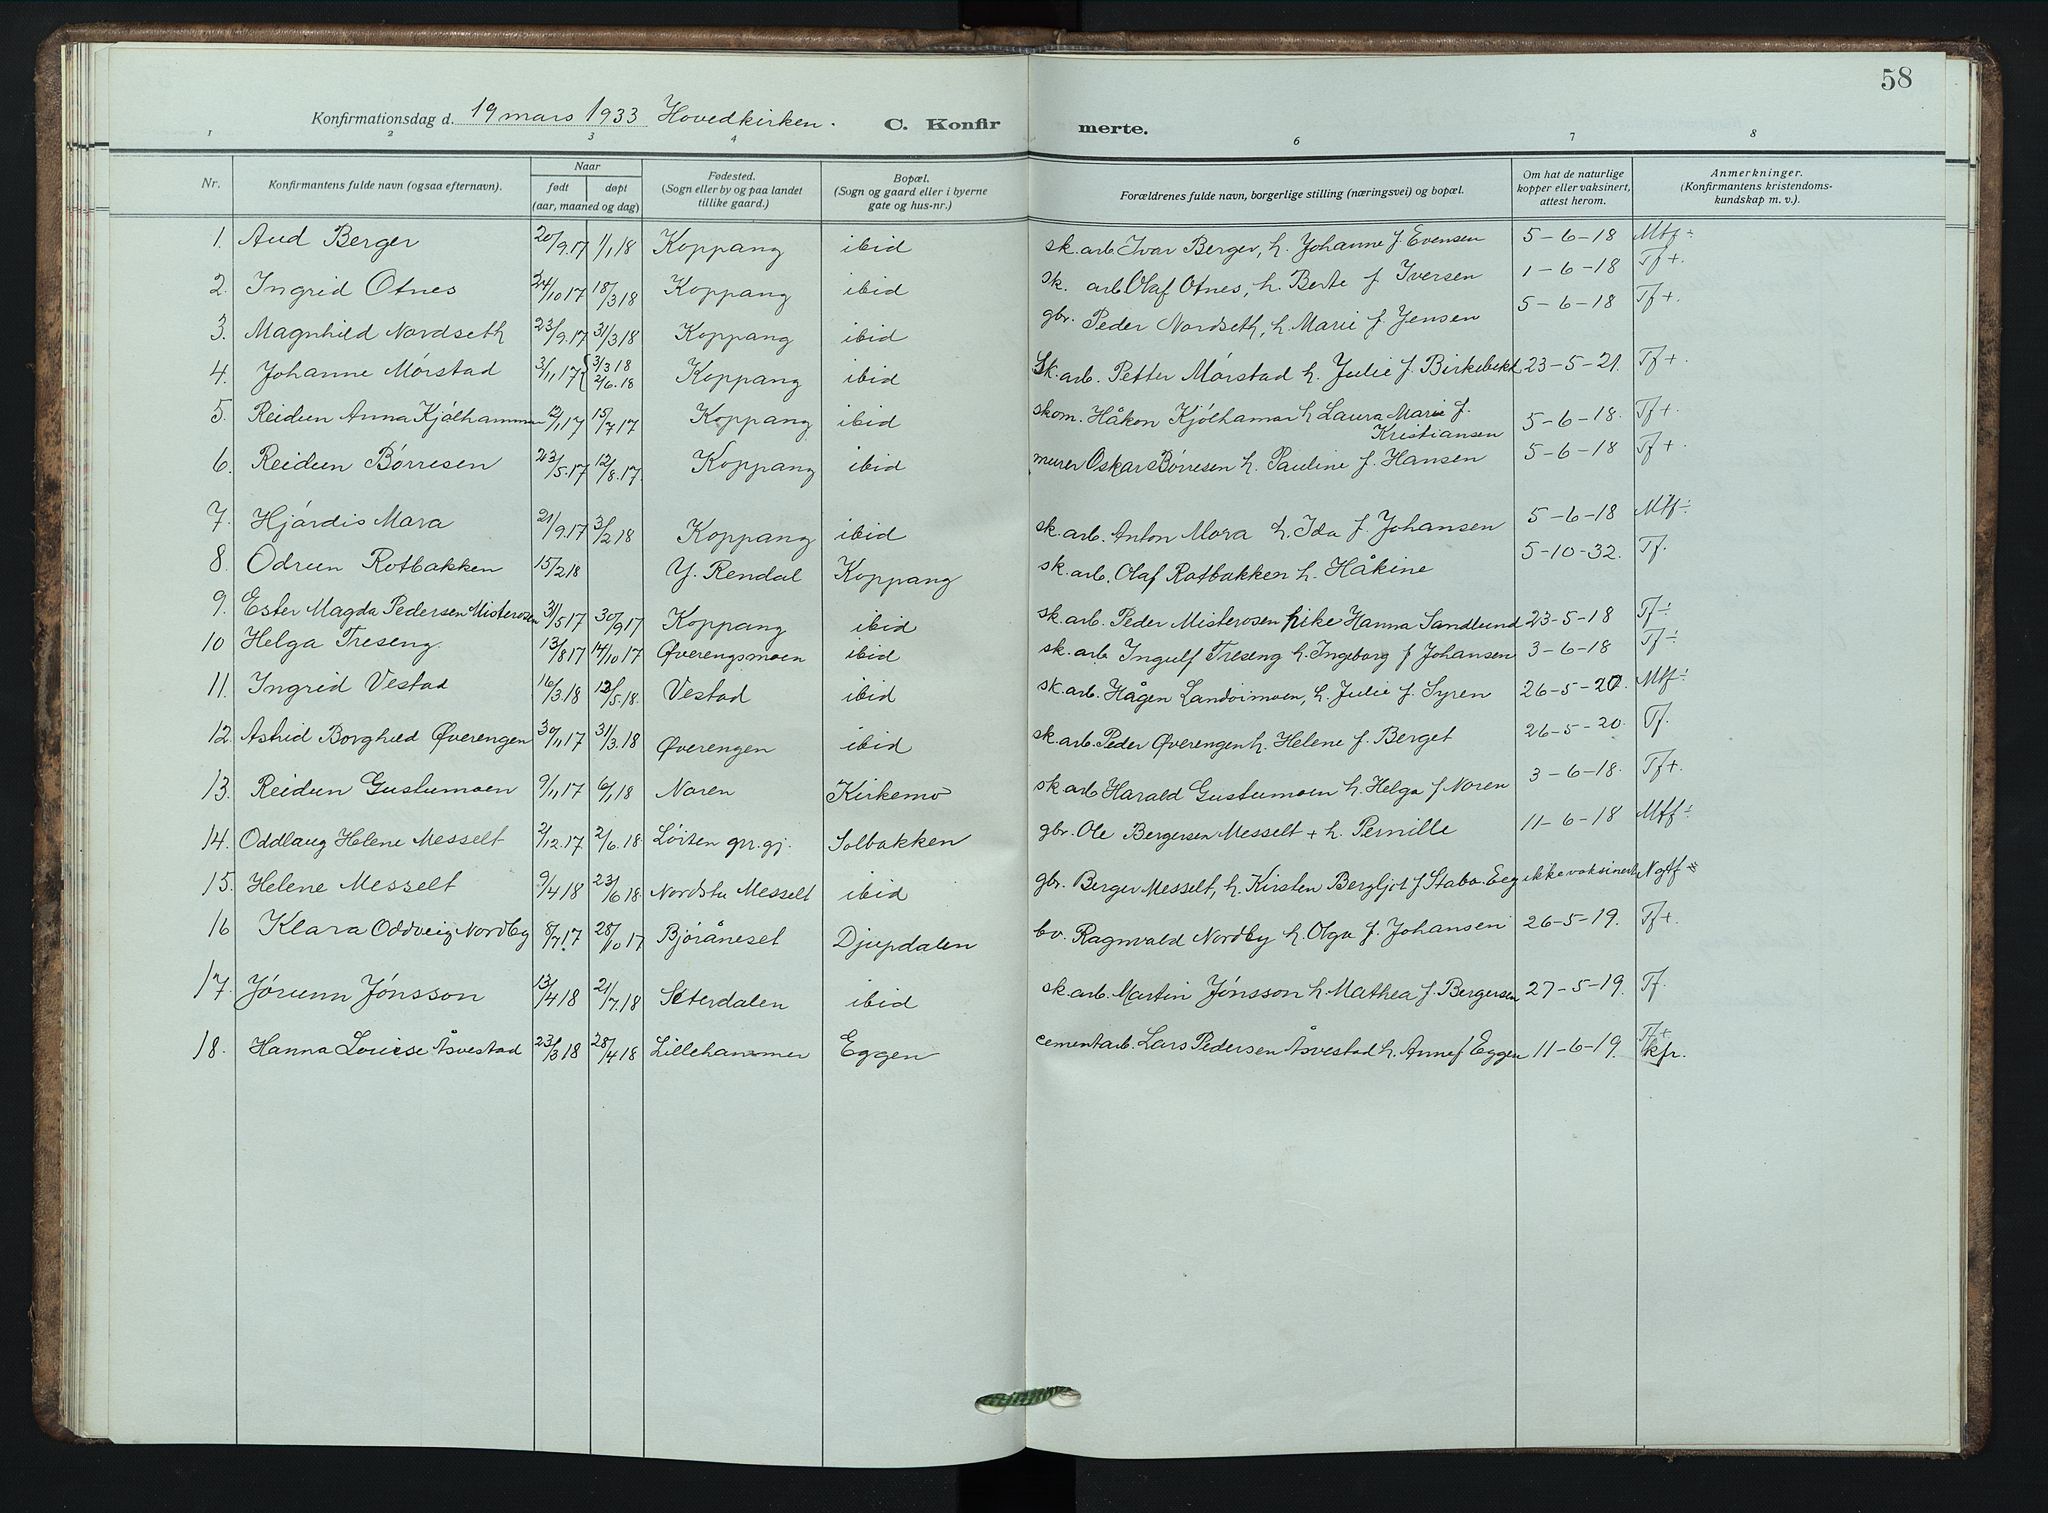 58
Konfirmationsdag d. 19 mars 1933 Hovedkirken. C. Konfir merte.
1 2 3 4 6 7 8
Nr. Konfirmantens fulde navn (ogsaa efternavn). Naar født døpt (aar, maaned og dag) Fødested. (Sogn eller by og paa landet tillike gaard.) Bopæl. (Sogn og gaard eller i byerne gate og hus-nr.) Forældrenes fulde navn, borgerlige stilling (næringsvei) og bopæl. Om hat de naturlige kopper eller vaksinert, attest herom. Anmerkninger. (Konfirmantens kristendomskundskap m. v.).
1. Aud Berger 20/9.17 1/1.18 Koppang ibid sk. arb Ivar Berger, h. Johanne f. Evensen 5-6-18 Mtf ÷
2. Ingrid Otnes 24/10 17 18/3 18 Koppang ibid sk. arb Olaf Otnes, h. Berte f Iversen 1-6-18 Tf+.
3. Magnhild Nordseth 23/9.17 31/3 18 Koppang ibid gbr. Peder Nordseth, h. Marie f. Jensen 5-6-18 Tf+.
4. Johanne Mørstad 3/11 17 { 3/3 18 2/6.18 Koppang ibid sk. arb. Petter Mørstad h. Julie f Birkebekk 23-5-21. Tf+.
5. Reidun Anna Kjølhammar 12/1 17 15/7 17 Koppang ibid skom. Håkon Kjølhamar h Laura Marie f. Kristiansen 5-6-18. Tf+.
6. Reidun Børresen 23/5.17 12/8.17. Koppang ibid murer Oskar Børresen h. Pauline f. Hansen 5-6-18 Tf+
7. Hjørdis Mora 21/9.17 3/2 18 Koppang ibid sk. arb. Anton Mora h. Ida f. Johansen 5-6-18 Mtf÷
8. Odrun Rotbakken 15/2 18 Y. Rendal Koppang sk. arb. Olaf Rotbakken h. Håkine 5-10-32. Tf.
9. Ester Magda Pedersen Misterosen 31/5 17 30/9 17 Koppang ibid sk. arb. Peder Misterosen pike Hanna Sandlund 23-5-18 Tf÷
10 Helga Treseng 13/8 17 14/10 17 Øverengsmoen ibid sk. arb. Ingulf Treseng h. Ingeborg f Johansen 3-6-18 Tf÷
11. Ingrid Vestad 16/3.18 12/5.18. Vestad ibid sk. arb. Hågen Landsimoen, h. Julie f Syren 26-5-20. Mtf÷
12. Astrid Borghild Øverengen 30/11 17 31/3.18 Øverengen ibid sk. arb. Peder Øverengen h. Helene f. Berget 26-5-20. Tf.
13. Reidun Gustumoen 9/11 17 6/1 18 Noren Kirkemo sk. arb Harald Gustumoen h. Helga f Noren 3-6-18. Tf+.
14. Oddlaug Helene Messelt 2/12.17 2/6.18 Løiten pr. gj. Solbakken gbr. Ole Bergersen Messelt + h. Pernille 11-6-18 Mtf÷
15. Helene Messelt 9/4 18 23/6 18 Nordstu Messelt ibid gbr. Berger Messelt, h. Kirsten Bergljot f Stabo Eeg ikke vaksinert
16 Klara Oddveig Nordby 8/7 17 28/10 17 Bjøråneset Djupdalen bv. Ragnvald Nordby h. Olga f. Johansen 26-5-19. Tf+.
17. Jørunn Jónsson 13/4 18 21/7.18 Sæterdalen ibid sk. arb. Martin Jónsson h. Mathea f. Bergersen 27-5-19. Tf.
18. Hanna Louise Åsvestad 23/3 18 28/4 18 Lillehammer Eggen cementarb. Lars Pedersen Åsvestad h. Anne f Eggen 11-6-19. Tf+ kfr.